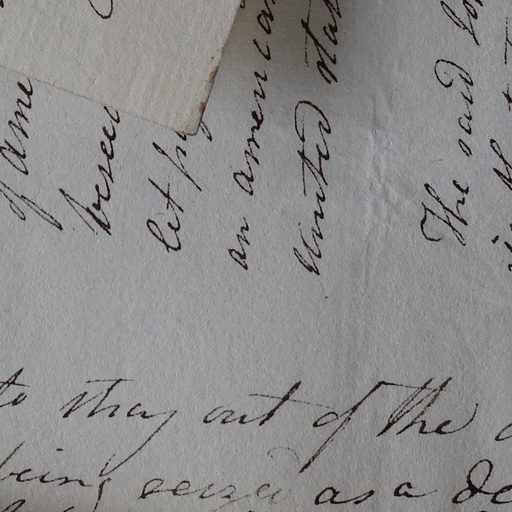 of ame
let
an american
United stat
The said
to stay out of the
being seized as a de